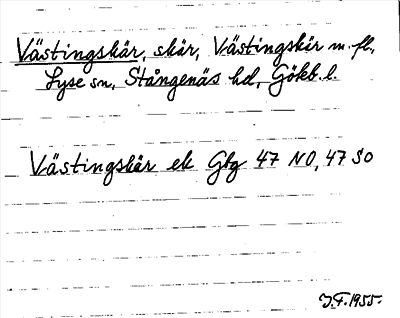 Västingskär, skär, Västingskär m. fl.,
Lyse sn, Stångenäs hd, Gökb. l.
Västingskär ek Gbg 47 NO, 47 SO
J.F. 1955.